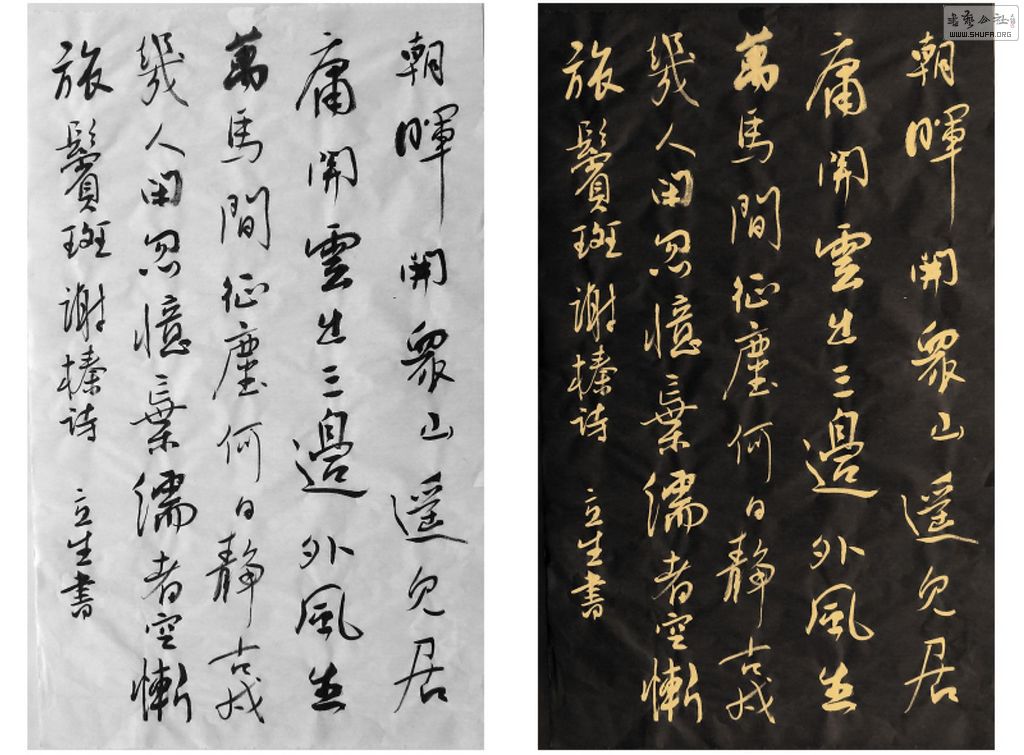 朝暉開眾山遥見居
庸關雲出三邊外風生
萬馬間征塵何日靜古戍
幾人閑忽憶棄繻者空慚
旅鬢斑謝榛詩 立生書
朝暉開眾山遥見居
庸關雲出三邊外風生
萬馬間征塵何日靜古戍
幾人閑忽憶棄繻者空慚
旅鬢斑謝榛詩 立生書
WWW.SHUFA.ORG